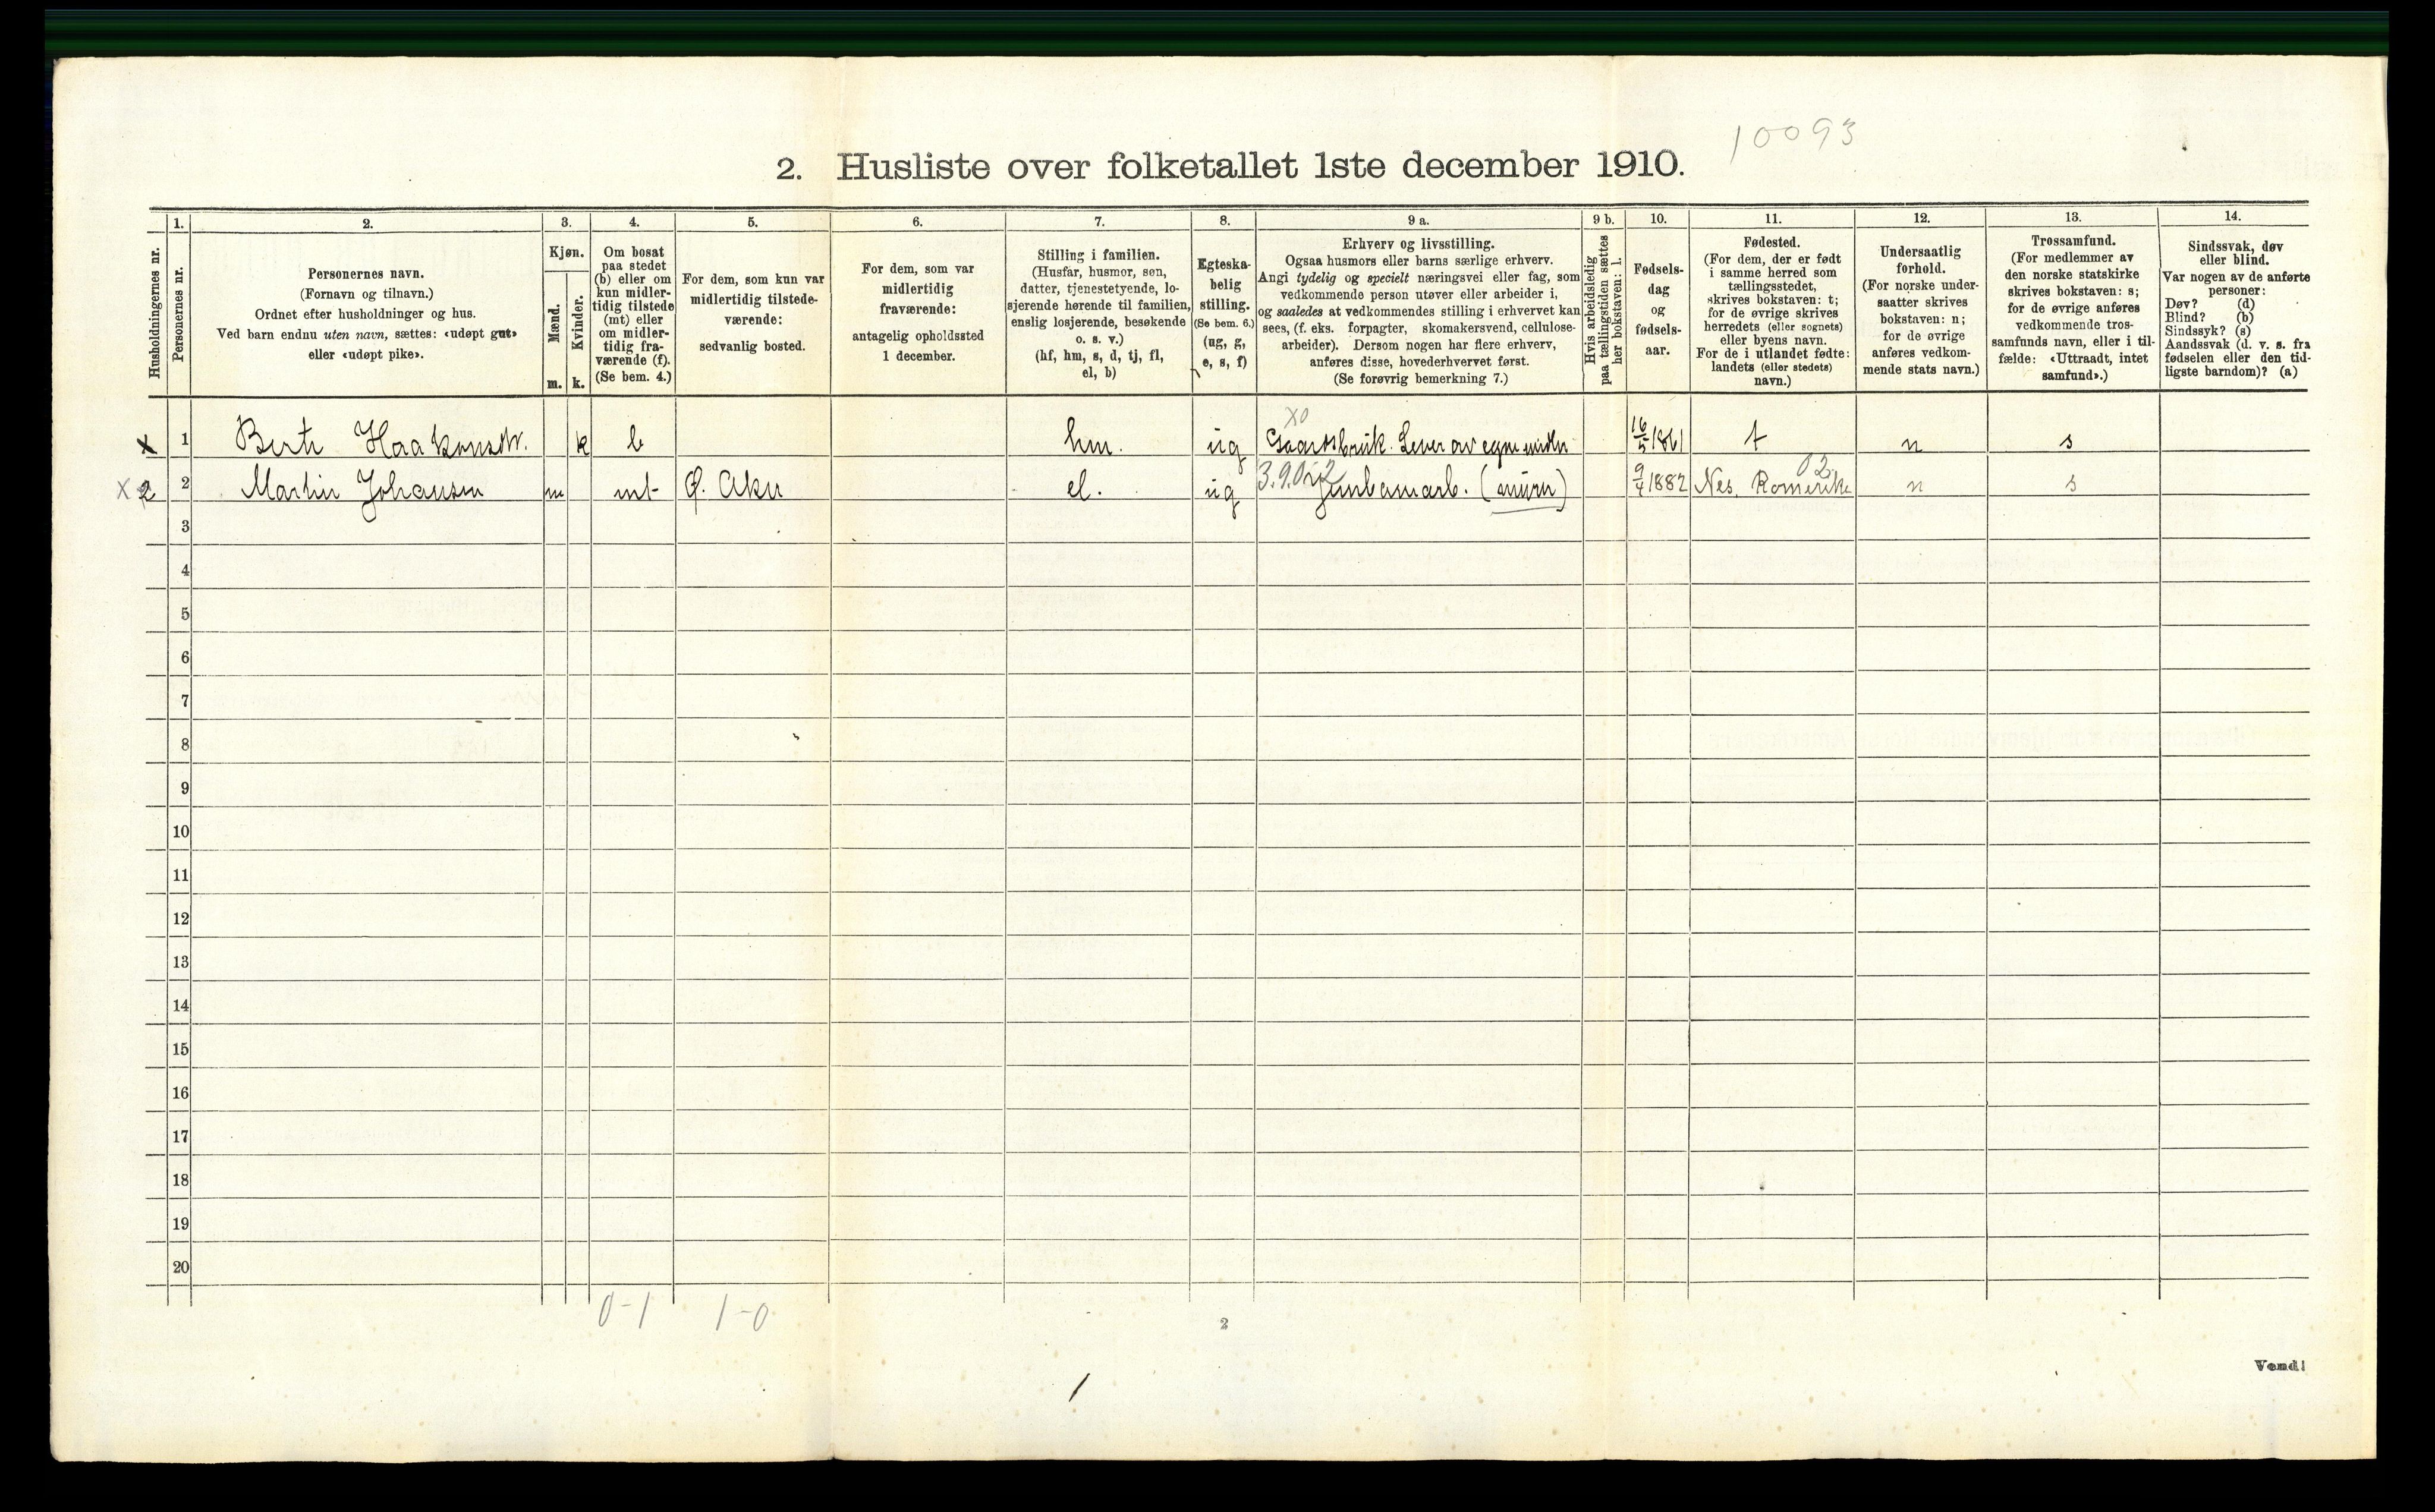 10093
2. Husliste over folketallet 1ste december 1910.
Husholdningernes nr.
1.
Personernes nr.
2.
Personernes navn.
(Fornavn og tilnavn.)
Ordnet efter husholdninger og hus.
Ved barn endnu uten navn, sættes: «udøpt gut»
eller «udøpt pike».
3.
Kjøn.
Mænd.
Kvinder.
m. k.
4.
Om bosat
paa stedet
(b) eller om
kun midler-
tidig tilstede
(mt) eller
om midler-
tidig fra-
værende (f).
(Se bem. 4.)
5.
For dem, som kun var
midlertidig tilstede-
værende:
sedvanlig bosted.
6.
For dem, som var
midlertidig
fraværende:
antagelig opholdssted
1 december.
7.
Stilling i familien.
(Husfar, husmor, søn,
datter, tjenestetyende, lo-
sjerende hørende til familien,
enslig losjerende, besøkende
o. s. v.)
(hf, hm, s, d, tj, fl,
el, b)
8.
Egteska-
belig
stilling.
(Se bem. 6.)
(ug, g,
e, s, f)
9 a.
Erhverv og livsstilling.
Ogsaa husmors eller barns særlige erhverv.
Angi tydelig og specielt næringsvei eller fag, som
vedkommende person utøver eller arbeider i,
og saaledes at vedkommendes stilling i erhvervet kan
sees, (f. eks. forpagter, skomakersvend, cellulose-
arbeider). Dersom nogen har flere erhverv,
anføres disse, hovederhvervet først.
(Se forøvrig bemerkning 7.)
9 b.
Hvis arbeidsledig
paa tællingstiden sættes
her bokstaven: l.
10.
Fødsels-
dag
og
fødsels-
aar.
11.
Fødested.
(For dem, der er født
i samme herred som
tællingsstedet,
skrives bokstaven: t;
for de øvrige skrives
herredets (eller sognets)
eller byens navn.
For de i utlandet fødte:
landets (eller stedets)
navn.)
12.
Undersaatlig
forhold.
(For norske under-
saatter skrives
bokstaven: n;
for de øvrige
anføres vedkom-
mende stats navn.)
13.
Trossamfund.
(For medlemmer av
den norske statskirke
skrives bokstaven: s;
for de øvrige anføres
vedkommende tros-
samfunds navn, eller i til-
fælde: «Uttraadt, intet
samfund».)
14.
Sindssvak, døv
eller blind.
Var nogen av de anførte
personer:
Døv? (d)
Blind? (b)
Sindssyk? (s)
Aandssvak (d. v. s. fra
fødselen eller den tid-
ligste barndom)? (a)
X0
x 1 Haakonsdtr. k b hm. ug Gaardsbruk. Lever av egne midler 16/5 1861 t n s
3.9.02 02
X 2 2 Martin Johansen m mt Ø. Aker el. ug Jernbanearb. 9/4 1882 Nes. Romerike n s
3
4
5
6
7
8
9
10
11
12
13
14
15
16
17
18
19
20
0-1 1-0
2
Vend!